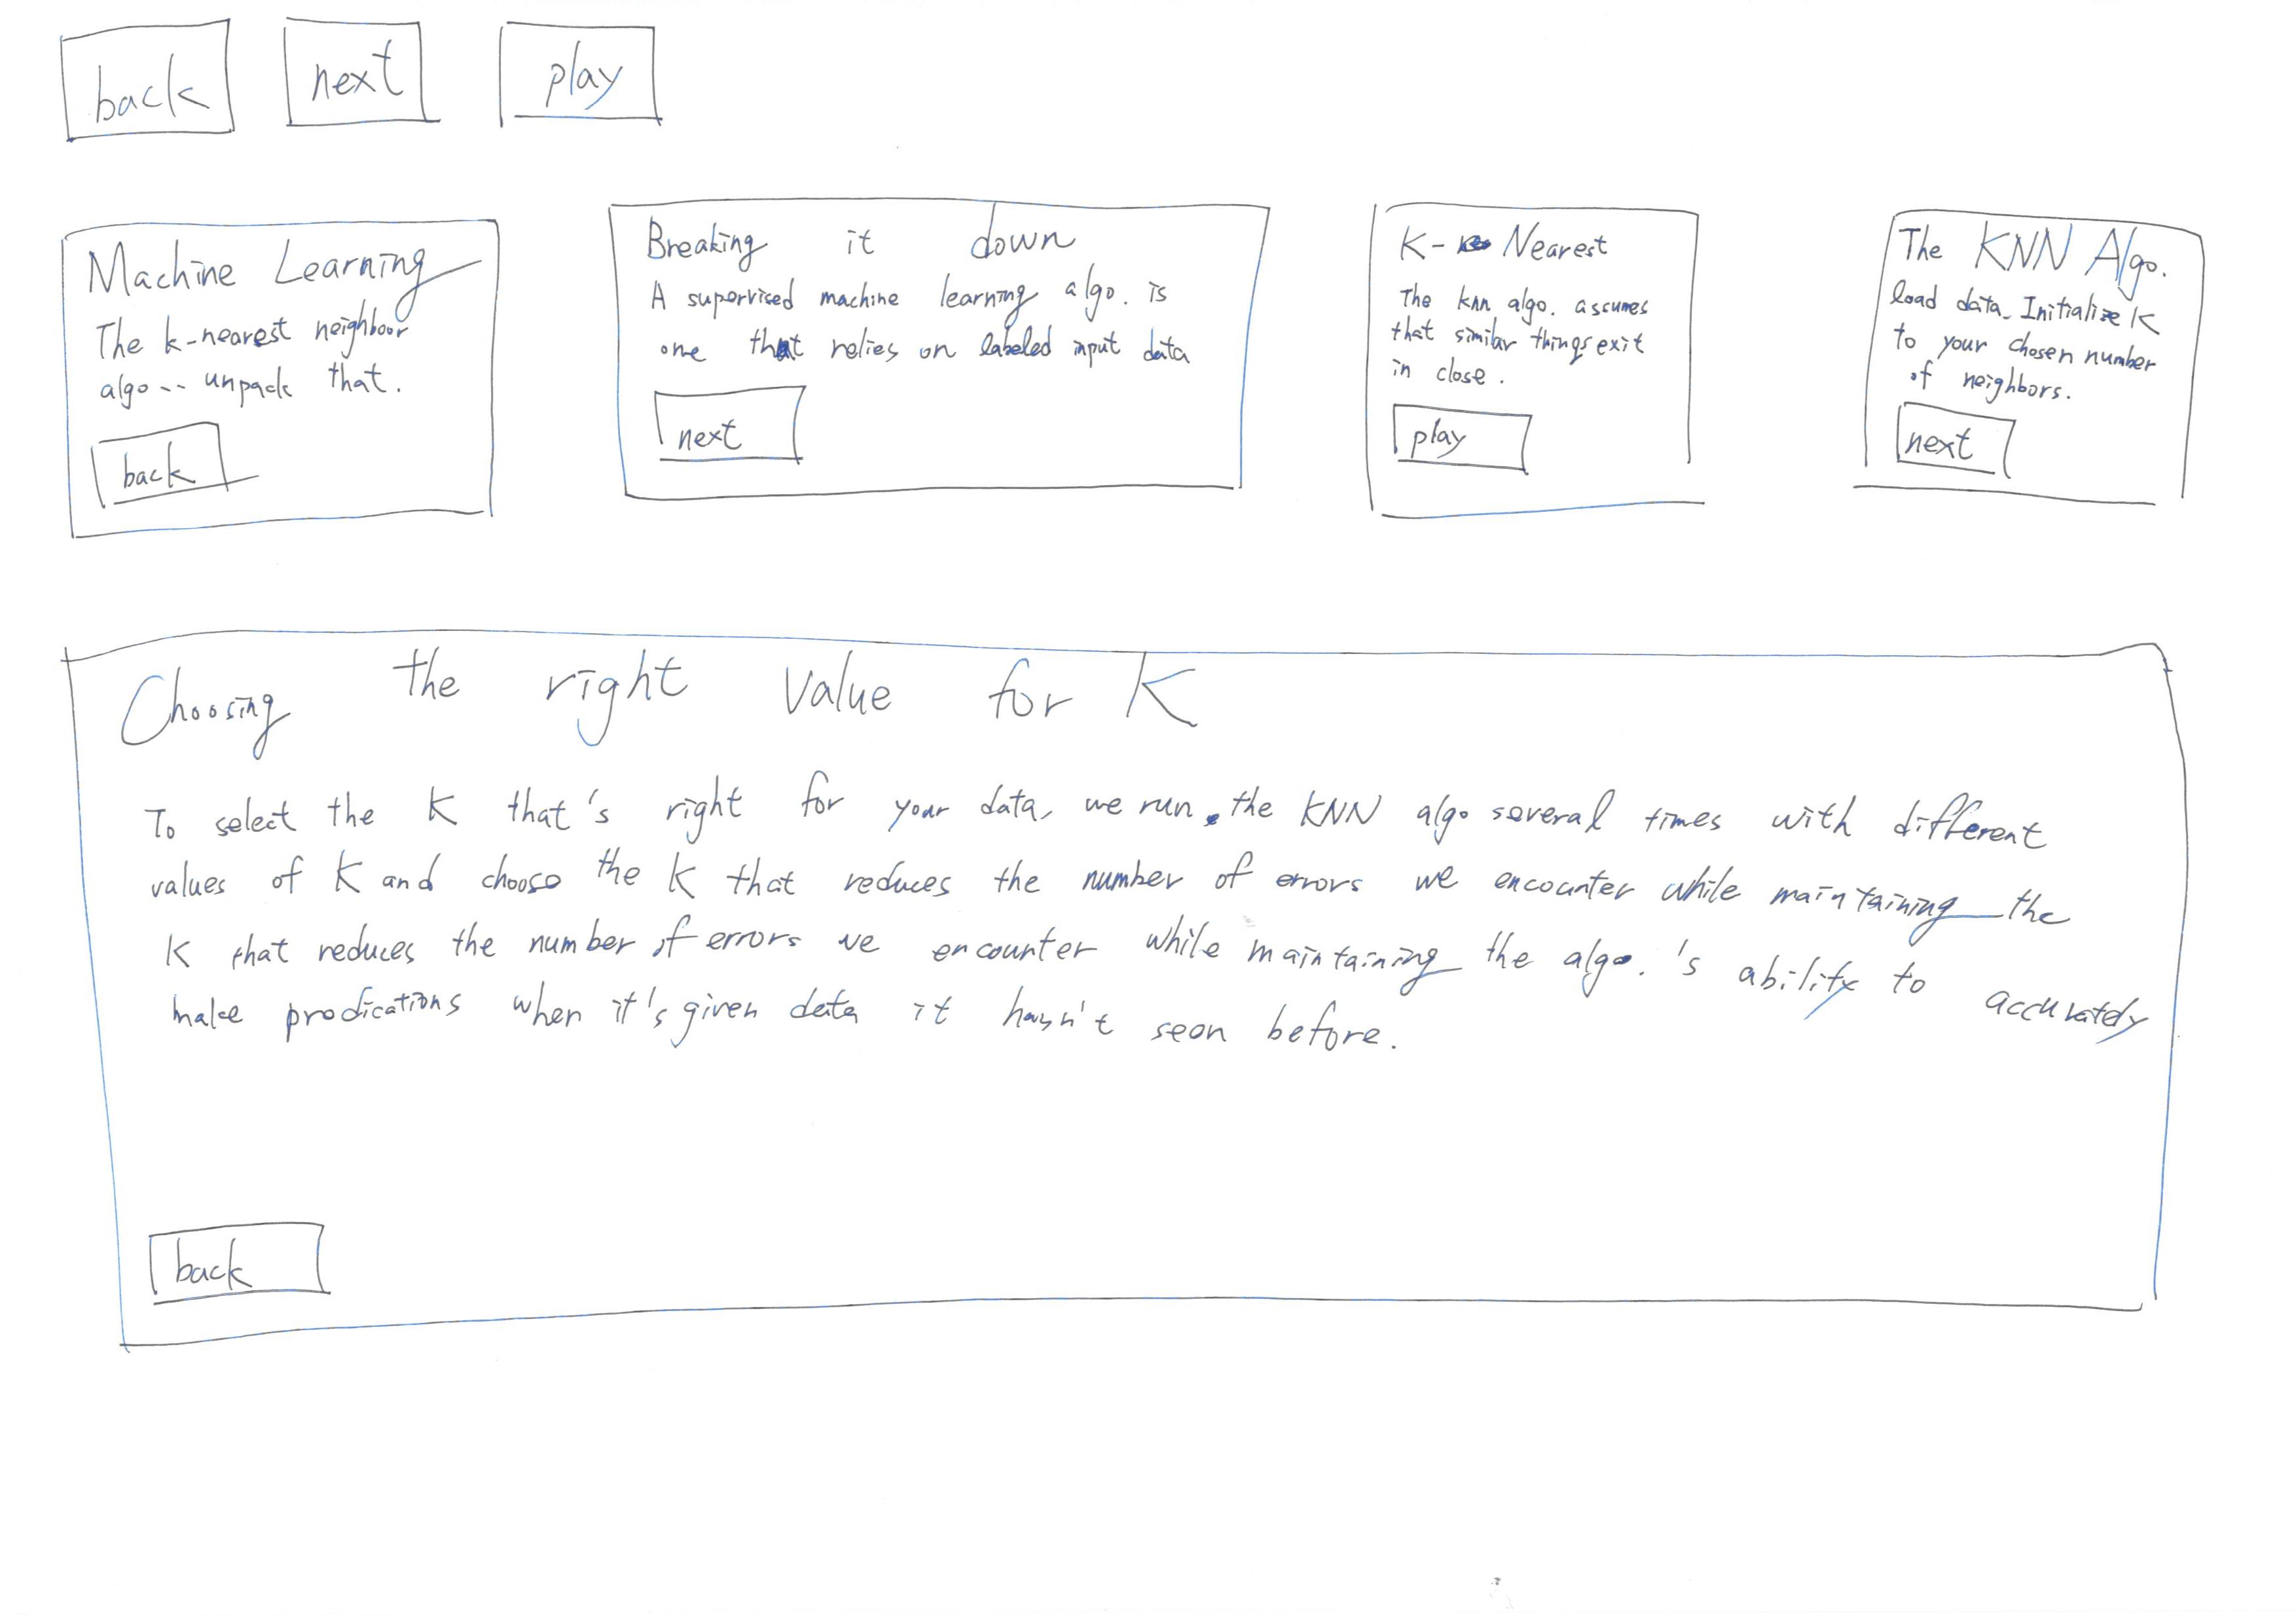 back
next
play
Machine Learning
The k-nearest neighbour
algo-- unpack that.
back
Breaking it down
A supervised machine learning algo. is
one that relies on labeled input data
next
K- Nearest
The knn algo. assumes
that similar things exit
in close.
play
The KNN Algo.
load data. Initialize K
to your chosen number
of neighbors.
next
Choosing the right value for K
To select the K that's right for your data, we run the KNN algo several times with different
values of K and choose the K that reduces the number of errors we encounter while maintaining the
K that reduces the number of errors we encounter while maintaining the algo.'s ability to accurately
make prodications when it's given data it hasn't seen before.
back